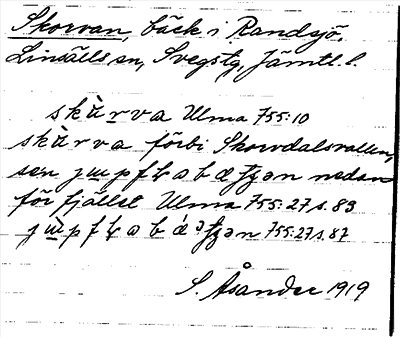 Skorvan, bäck i Randsjö,
Linsälls sn, Svegs tg, Jämtl. l.
skùrva Ulma 755:10
skùrva förbi Skorvdalsvallen,
sen nedan
för fjället Ulma 755:27 s. 83
755:27 s. 87
S. Åsander 1919